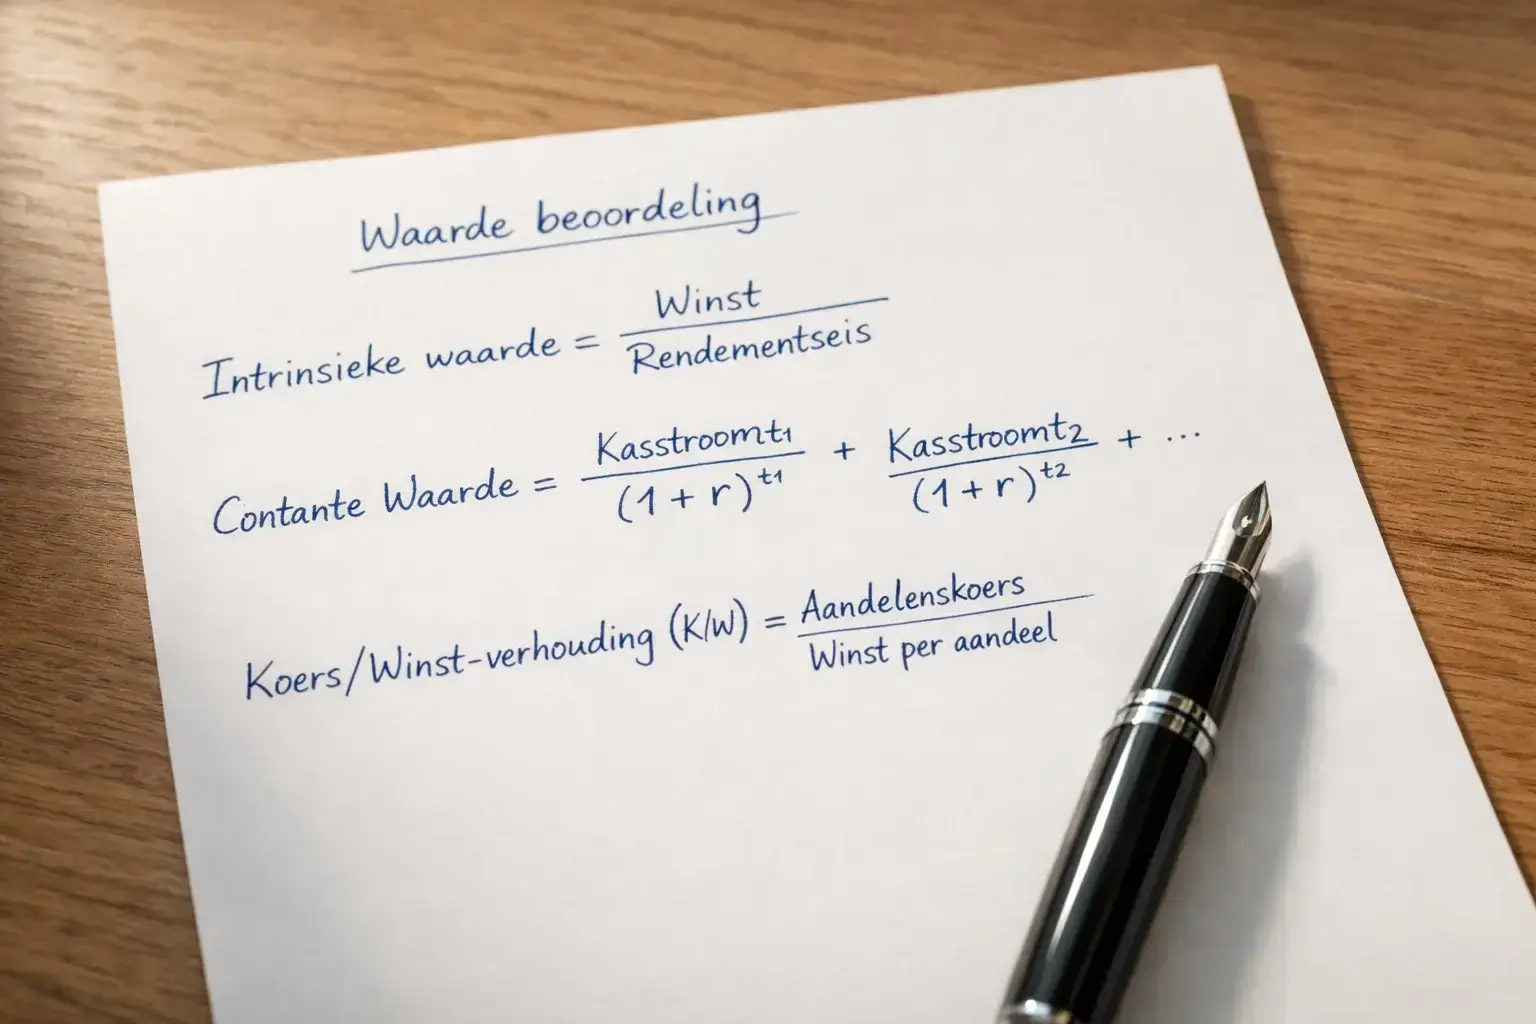 Waarde beoordeling
Intrinsieke waarde = Winst / Rendementseis
Contante Waarde = Kasstroomt1 / (1 + r)^t1 + Kasstroomt2 / (1 + r)^t2 + ...
Koers/Winst-verhouding (K/W) = Aandelenskoers / Winst per aandeel